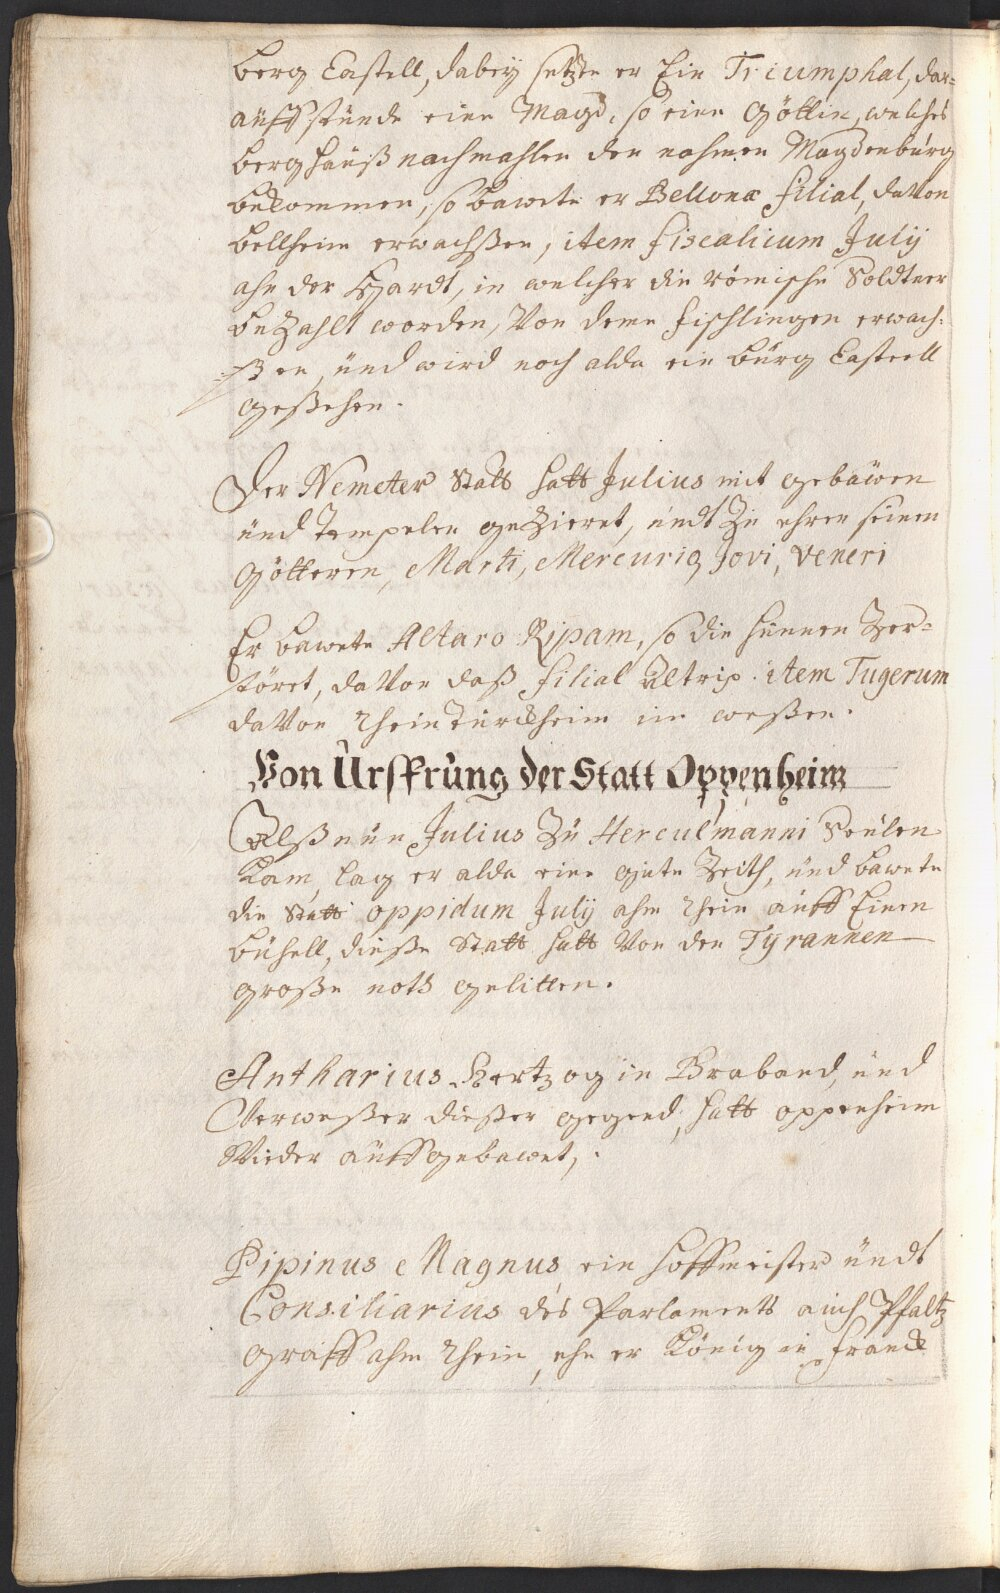 berg Castell, dabeÿ setzte er Ein Triumphal, dar=
auff stunde eine Magd, so eine Göttin, welches
berghauß nachmahlen den nahmen Magdenburg
bekommen, so bawete er Bellonæ filial, davon
bellheim erwachßen, item fiscalicum Julij
ahn der Hardt, in welcher die römische Soldtner
bezahlt worden, Von deme fischlingen erwach=
ßen, und wird noch alda ein burg Casteell
geßehen.
Der Nemeter Statt hatt Julius mit gebäwen
und Tempelen gezieret, undt zu ehren seinen
Götteren, Marti, Mercurio, Jovi, Veneri
Er bawete Altaro Ripam, so die hunnen Zer=
störet, davon daß filial Altrip. item Tugerum
davon Rhein Türckheim im weßen.
Von Urspfrung der Statt Oppenheim
Alß nun Julius zu Herculmanni Seulen
kam, lag er alda eine gute Zeith, und bawete
die Statt oppidum Julij ahm Rhein auff Einen
buhell, dieße Statt hatt Von den Tyrannen
große noth gelitten.
Antharius Hertzog in Braband, und
Verweßer dießer gegend, hatt oppenheim
Wieder auffgebawet,.
Pipinus Magnus, ein hoffmeister undt
Consiliarius des Parlaments auch Pfaltz
graff ahm Rhein, ehe er König in franck